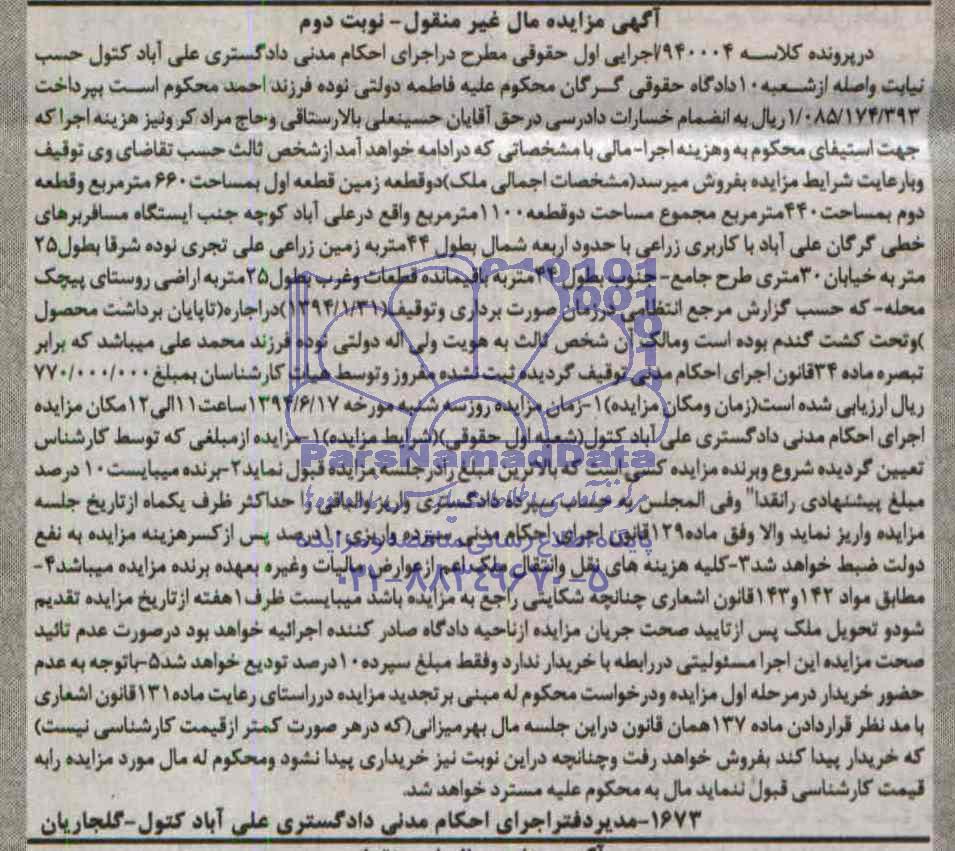 آگهی مزایده مال غیر منقول- نوبت دوم
درپرونده کلاسه ۹۴۰۰۰۴/اجرایی اول حقوقی مطرح دراجرای احکام مدنی دادگستری علی آباد کتول حسب
نیابت واصله ازشعبه ۱۰دادگاه حقوقی گرگان محکوم علیه فاطمه دولتی نوده فرزند احمد محکوم است بپرداخت
۱/۰۸۵/۱۷۴/۳۹۳ ریال به انضمام خسارات دادرسی درحق آقایان حسینعلی بالارستاقی وحاج مراد کر ونیز هزینه اجرا که
جهت استیفای محکوم به وهزینه اجرا-مالی با مشخصاتی که درادامه خواهد آمد ازشخص ثالث حسب تقاضای وی توقیف
وبارعایت شرایط مزایده بفروش میرسد(مشخصات اجمالی ملک)دوقطعه زمین قطعه اول بمساحت۶۶۰ مترمربع وقطعه
دوم بمساحت۴۴۰مترمربع مجموع مساحت دوقطعه۱۱۰۰مترمربع واقع درعلی آباد کوچه جنب ایستگاه مسافربرهای
خطی گرگان علی آباد با کاربری زراعی با حدود اربعه شمال بطول ۴۴متربه زمین زراعی علی تجری نوده شرقا بطول۲۵
متر به خیابان ۳۰متری طرح جامع- جنوب بطول ۴۴متربه باقیمانده قطعات وغرب بطول۲۵متربه اراضی روستای پیچک
محله- که حسب گزارش مرجع انتظامی درزمان صورت برداری وتوقیف(۱۳۹۴/۱/۳۱)دراجاره(تاپایان برداشت محصول
)وتحت کشت گندم بوده است ومالک آن شخص ثالث به هویت ولی اله دولتی نوده فرزند محمد علی میباشد که برابر
تبصره ماده ۳۴قانون اجرای احکام مدنی توقیف گردیده ثبت نشده مفروز وتوسط هیات کارشناسان بمبلغ ۷۷۰/۰۰۰/۰۰۰
ریال ارزیابی شده است(زمان ومکان مزایده)۱-زمان مزایده روزسه شنبه مورخه ۱۳۹۴/۶/۱۷ساعت۱۱الی۱۲مکان مزایده
اجرای احکام مدنی دادگستری علی آباد کتول(شعبه اول حقوقی)(شرایط مزایده)۱-مزایده ازمبلغی که توسط کارشناس
تعیین گردیده شروع وبرنده مزایده کسی است که بالاترین مبلغ رادرجلسه مزایده قبول نماید۲-برنده میبایست۱۰ درصد
مبلغ پیشنهادی رانقدا" وفی المجلس به حساب سپرده دادگستری واریزوالباقی را حداکثر ظرف یکماه ازتاریخ جلسه
مزایده واریز نماید والا وفق ماده۱۲۹قانون اجرای احکام مدنی سپرده واریزی۱۰درصد پس ازکسرهزینه مزایده به نفع
دولت ضبط خواهد شد۳-کلیه هزینه های نقل وانتقال ملک اعم ازعوارض مالیات وغیره بعهده برنده مزایده میباشد۴-
مطابق مواد ۱۴۲و۱۴۳قانون اشعاری چنانچه شکایتی راجع به مزایده باشد میبایست ظرف۱هفته ازتاریخ مزایده تقدیم
شودو تحویل ملک پس ازتایید صحت جریان مزایده ازناحیه دادگاه صادر کننده اجرائیه خواهد بود درصورت عدم تائید
صحت مزایده این اجرا مسئولیتی دررابطه با خریدار ندارد وفقط مبلغ سپرده۱۰درصد تودیع خواهد شد۵-باتوجه به عدم
حضور خریدار درمرحله اول مزایده ودرخواست محکوم له مبنی برتجدید مزایده درراستای رعایت ماده۱۳۱قانون اشعاری
با مد نظر قراردادن ماده ۱۳۷همان قانون دراین جلسه مال بهرمیزانی(که درهر صورت کمتر ازقیمت کارشناسی نیست)
که خریدار پیدا کند بفروش خواهد رفت وچنانچه دراین نوبت نیز خریداری پیدا نشود ومحکوم له مال مورد مزایده رابه
قیمت کارشناسی قبول ننماید مال به محکوم علیه مسترد خواهد شد.
۱۶۷۳-مدیردفتراجرای احکام مدنی دادگستری علی آباد کتول-گلجاریان
ParsNamadData
پایگاه اطلاع رسانی مناقصه و مزایده
۰۲۱-۸۸۳۴۹۶۷۰-۵